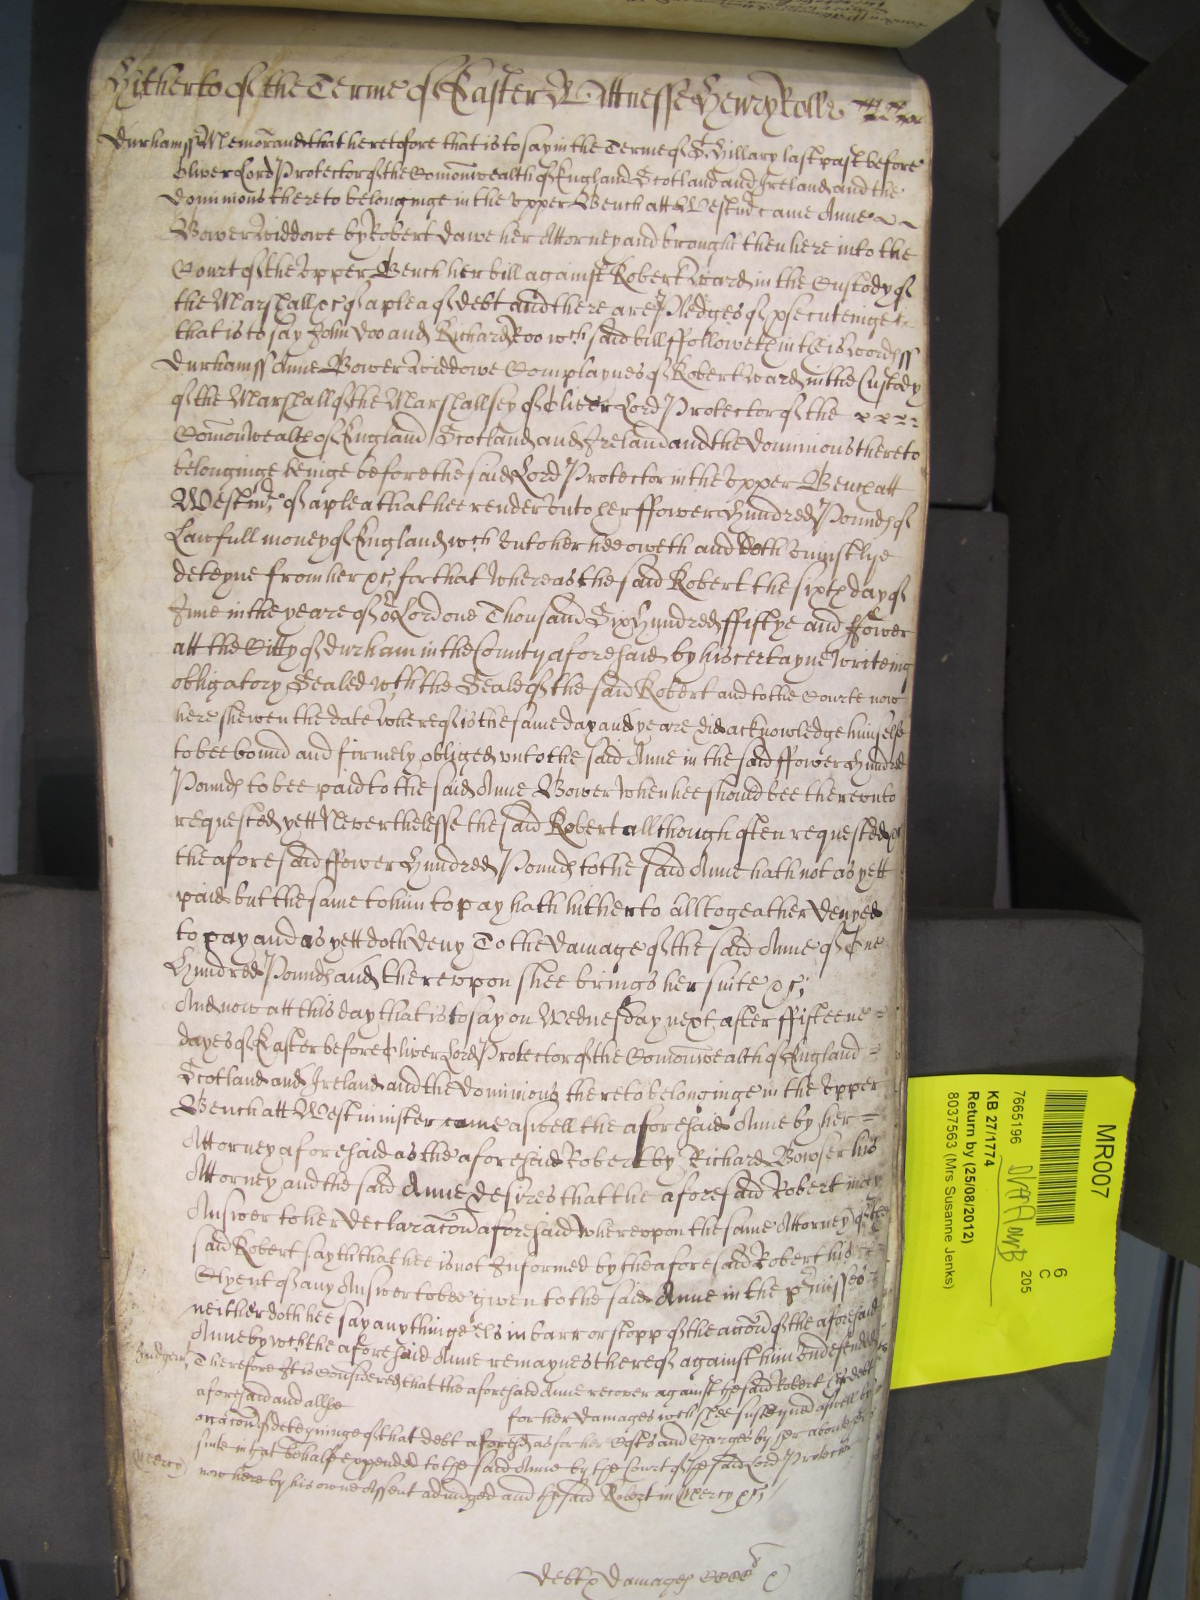 Hitherto of the Terme of Easter Wittnesse Henry Rolle
Durham ss Memorand that heretofore that is to say in the Terme of St Hillary last past before
Oliver Lord Protector of the Comonwealth of England Scotland and Ireland and the
Dominions thereto belonginge in the Vpper Bench att Westmr came Anne
Bower Widdowe by Robert Dawe her Attorney and brought then here into the
Court of the Vpper Bench her bill against Robert Ward in the Custody of
the Marshall &c of a plea of debt and there are Pledges of prosecuteinge
that is to say John Doo and Richard Roo wch said bill ffolloweth in theis words ss
Durham ss Anne Bower Widdowe Complaynes of Robert Ward in the Custody
of the Marshall of the Marshallsey of Oliver Lord Protector of the
Comonwealth of England Scotland and Ireland and the Dominions thereto
belonginge beinge before the said Lord Protector in the Vpper Bench att
Westmr of a plea that hee render vnto her ffower Hundred Pounds of
Lawfull money of England wch vnto her hee oweth and doth vniustlye
deteyne from her &c for that Whereas the said Robert the sixth day of
June in the yeare of or Lord one Thousand Six Hundred ffiftye and ffower
att the Citty of Durham in the County aforesaid by his certayne Writeing
obligatory Sealed wth the Seale of the said Robert and to the Courte now
here shewen the date Whereof is the same day and yeare did acknowledge himself
to bee bound and firmely obliged vnto the said Anne in the said ffower Hundred
Pounds to bee paid to the said Anne Bower When hee should bee therevnto
requested yett Neverthelesse the said Robert allthough often requested &c
the aforesaid ffower Hundred Pounds to the said Anne hath not as yett
paid but the same to him to pay hath hitherto alltogeather denyed
to pay and as yett doth deny To the damage of the said Anne of One
Hundred Pounds and therevpon shee brings her suite &c
And now att this day that is to say on Wednesday next after ffifteene
dayes of Easter before Oliver Lord Protector of the Comonwealth of England
Scotland and Ireland and the Dominions thereto belonginge in the Vpper
Bench att Westminster came aswell the aforesaid Anne by her
Attorney aforesaid as the aforesaid Robert by Richard Bowser his
Attorney and the said Anne desires that the aforesaid Robert may
Answer to her declaracon aforesaid wherevpon the same Attorney of the
said Robert sayth that hee is not Informed by the aforesaid Robert his
Clyent of any Answer to bee given to the said Anne in the pmisses
neither doth hee say any thinge els in barr or stopp of the accon of the aforesaid
Anne by wch the aforesaid Anne remaynes thereof against him vndefended
Judgemt Therefore It is Considered that the aforesaid Anne recover against the said Robert her debt
aforesaid and allsoe for her damages wch shee susteyned aswell by
occacon of deteyninge of that debt aforesd as for her Costs and Charges by her about her
suite in that behalfe expended to the said Anne by the Court of the said Lord Protector
Mercy now here by his owne Assent adiudged and the said Robert in Mercy &c
debt & damages
MR007
6
C
7665196
205
KB 27/1774
Return by (25/08/2012)
8037563 (Mrs Susanne Jenks)